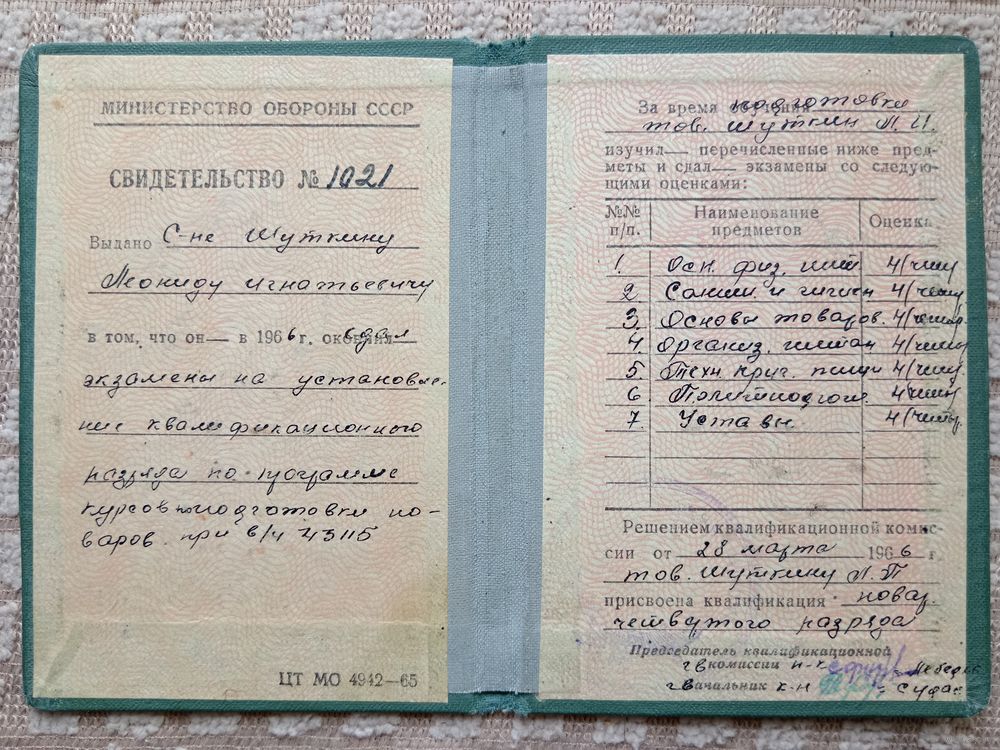 МИНИСТЕРСТВО ОБОРОНЫ СССР
СВИДЕТЕЛЬСТВО № 1021
Выдано С-не Шуткину
Леониду Игнатьевичу
в том, что он— в 1966 г. сдал
экзамены на установле-
ние квалификационного
разряда по программе
курсов подготовки по-
варов при в/ч 43115
ЦТ МО 4942—65
За время подготовки
тов. Шуткин Л. И.
изучил— перечисленные ниже пред-
меты и сдал— экзамены со следую-
щими оценками:
№№ п/п. Наименование предметов Оценка
1. Осн. физ. пит 4/
2 Санит. и гигиен 4/
3. Основы товаров. 4/
4. Организ. питан 4/
5. Техн. приг. пищи 4/
6 Политподгот. 4
7. Уставы 4/
Решением квалификационной комис-
сии от 28 марта 1966 г.
тов. Шуткину Л.
присвоена квалификация повар
четвертого разряда
Председатель квалификационной
комиссии
Начальник